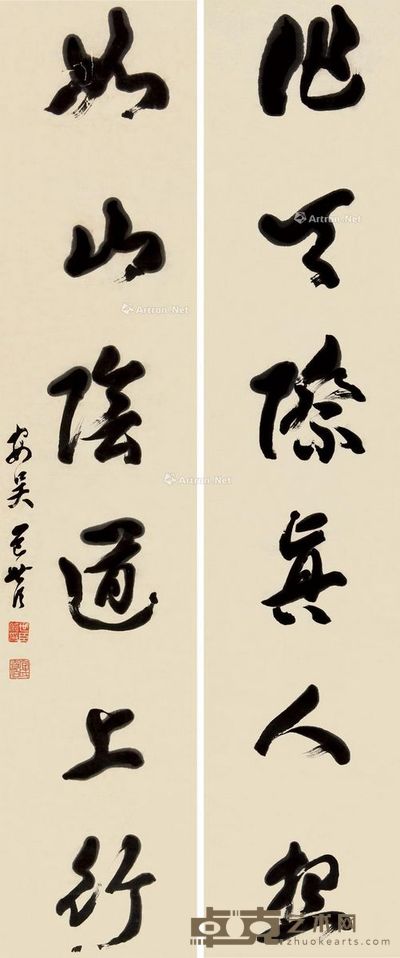 作天際真人想
如山陰道上行
安吴包世臣
Artron.Net
Artron.Net
Artron.Net
卓克艺术网
zhuokearts.com